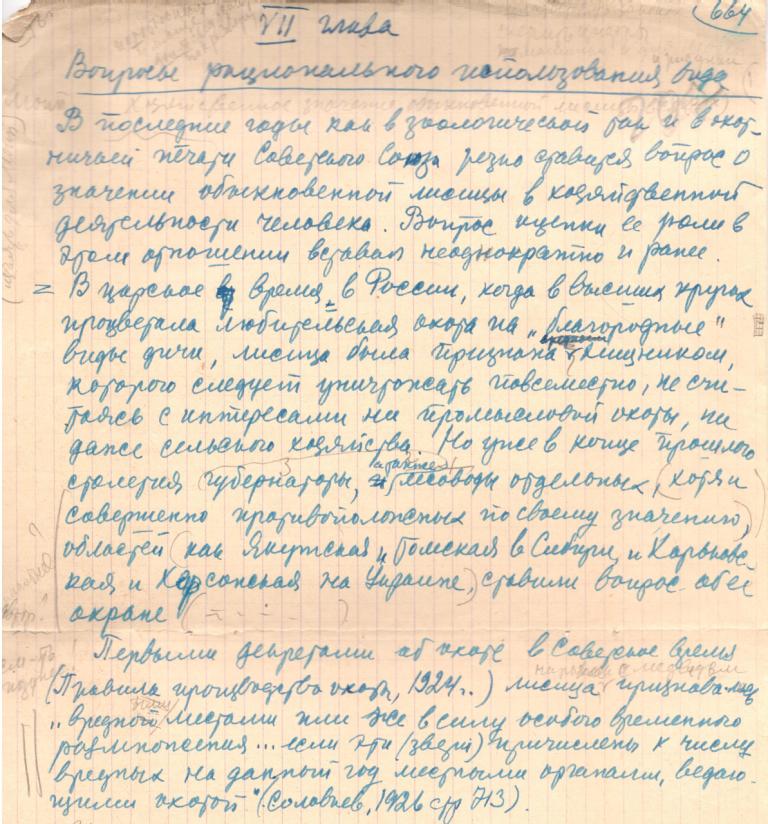 664
VII глава
Вопросы рационального использования вида
Хозяйственное значение обыкновенной лисицы
В последние годы как в зоологической так и в охот-
ничьей печати Советского Союза резко ставится вопрос о
значении обыкновенной лисицы в хозяйственной
деятельности человека. Вопрос оценки ее роли в
этом отношении вставал неоднократно и ранее.
= В царское время, в России, когда в высших кругах
процветала любительская охота на „благородные"
виды дичи, лисица была признана хищником,
которого следует уничтожать повсеместно, не счи-
таясь с интересами ни промысловой охоты, ни
даже сельского хозяйства. Но уже в конце прошлого
столетия губернаторы, а также лесоводы отдельных, (хотя и
совершенно противоположных по своему значению,)
областей (как Якутская, Томская в Сибири, и Харьковс-
кая и Херсонская на Украине,) ставили вопрос об ее
охране (- - - -)
Первыми декретами об охоте в Советское время
наравне с медведем
(Правила производства охоты, 1924..) лисица признавалась
„вредной местами или же в силу особого временного
размножения... если эти (звери) причислены к числу
вредных на данный год местными органами, ведаю-
щими охотой" (Соловьев, 1926 стр 713).